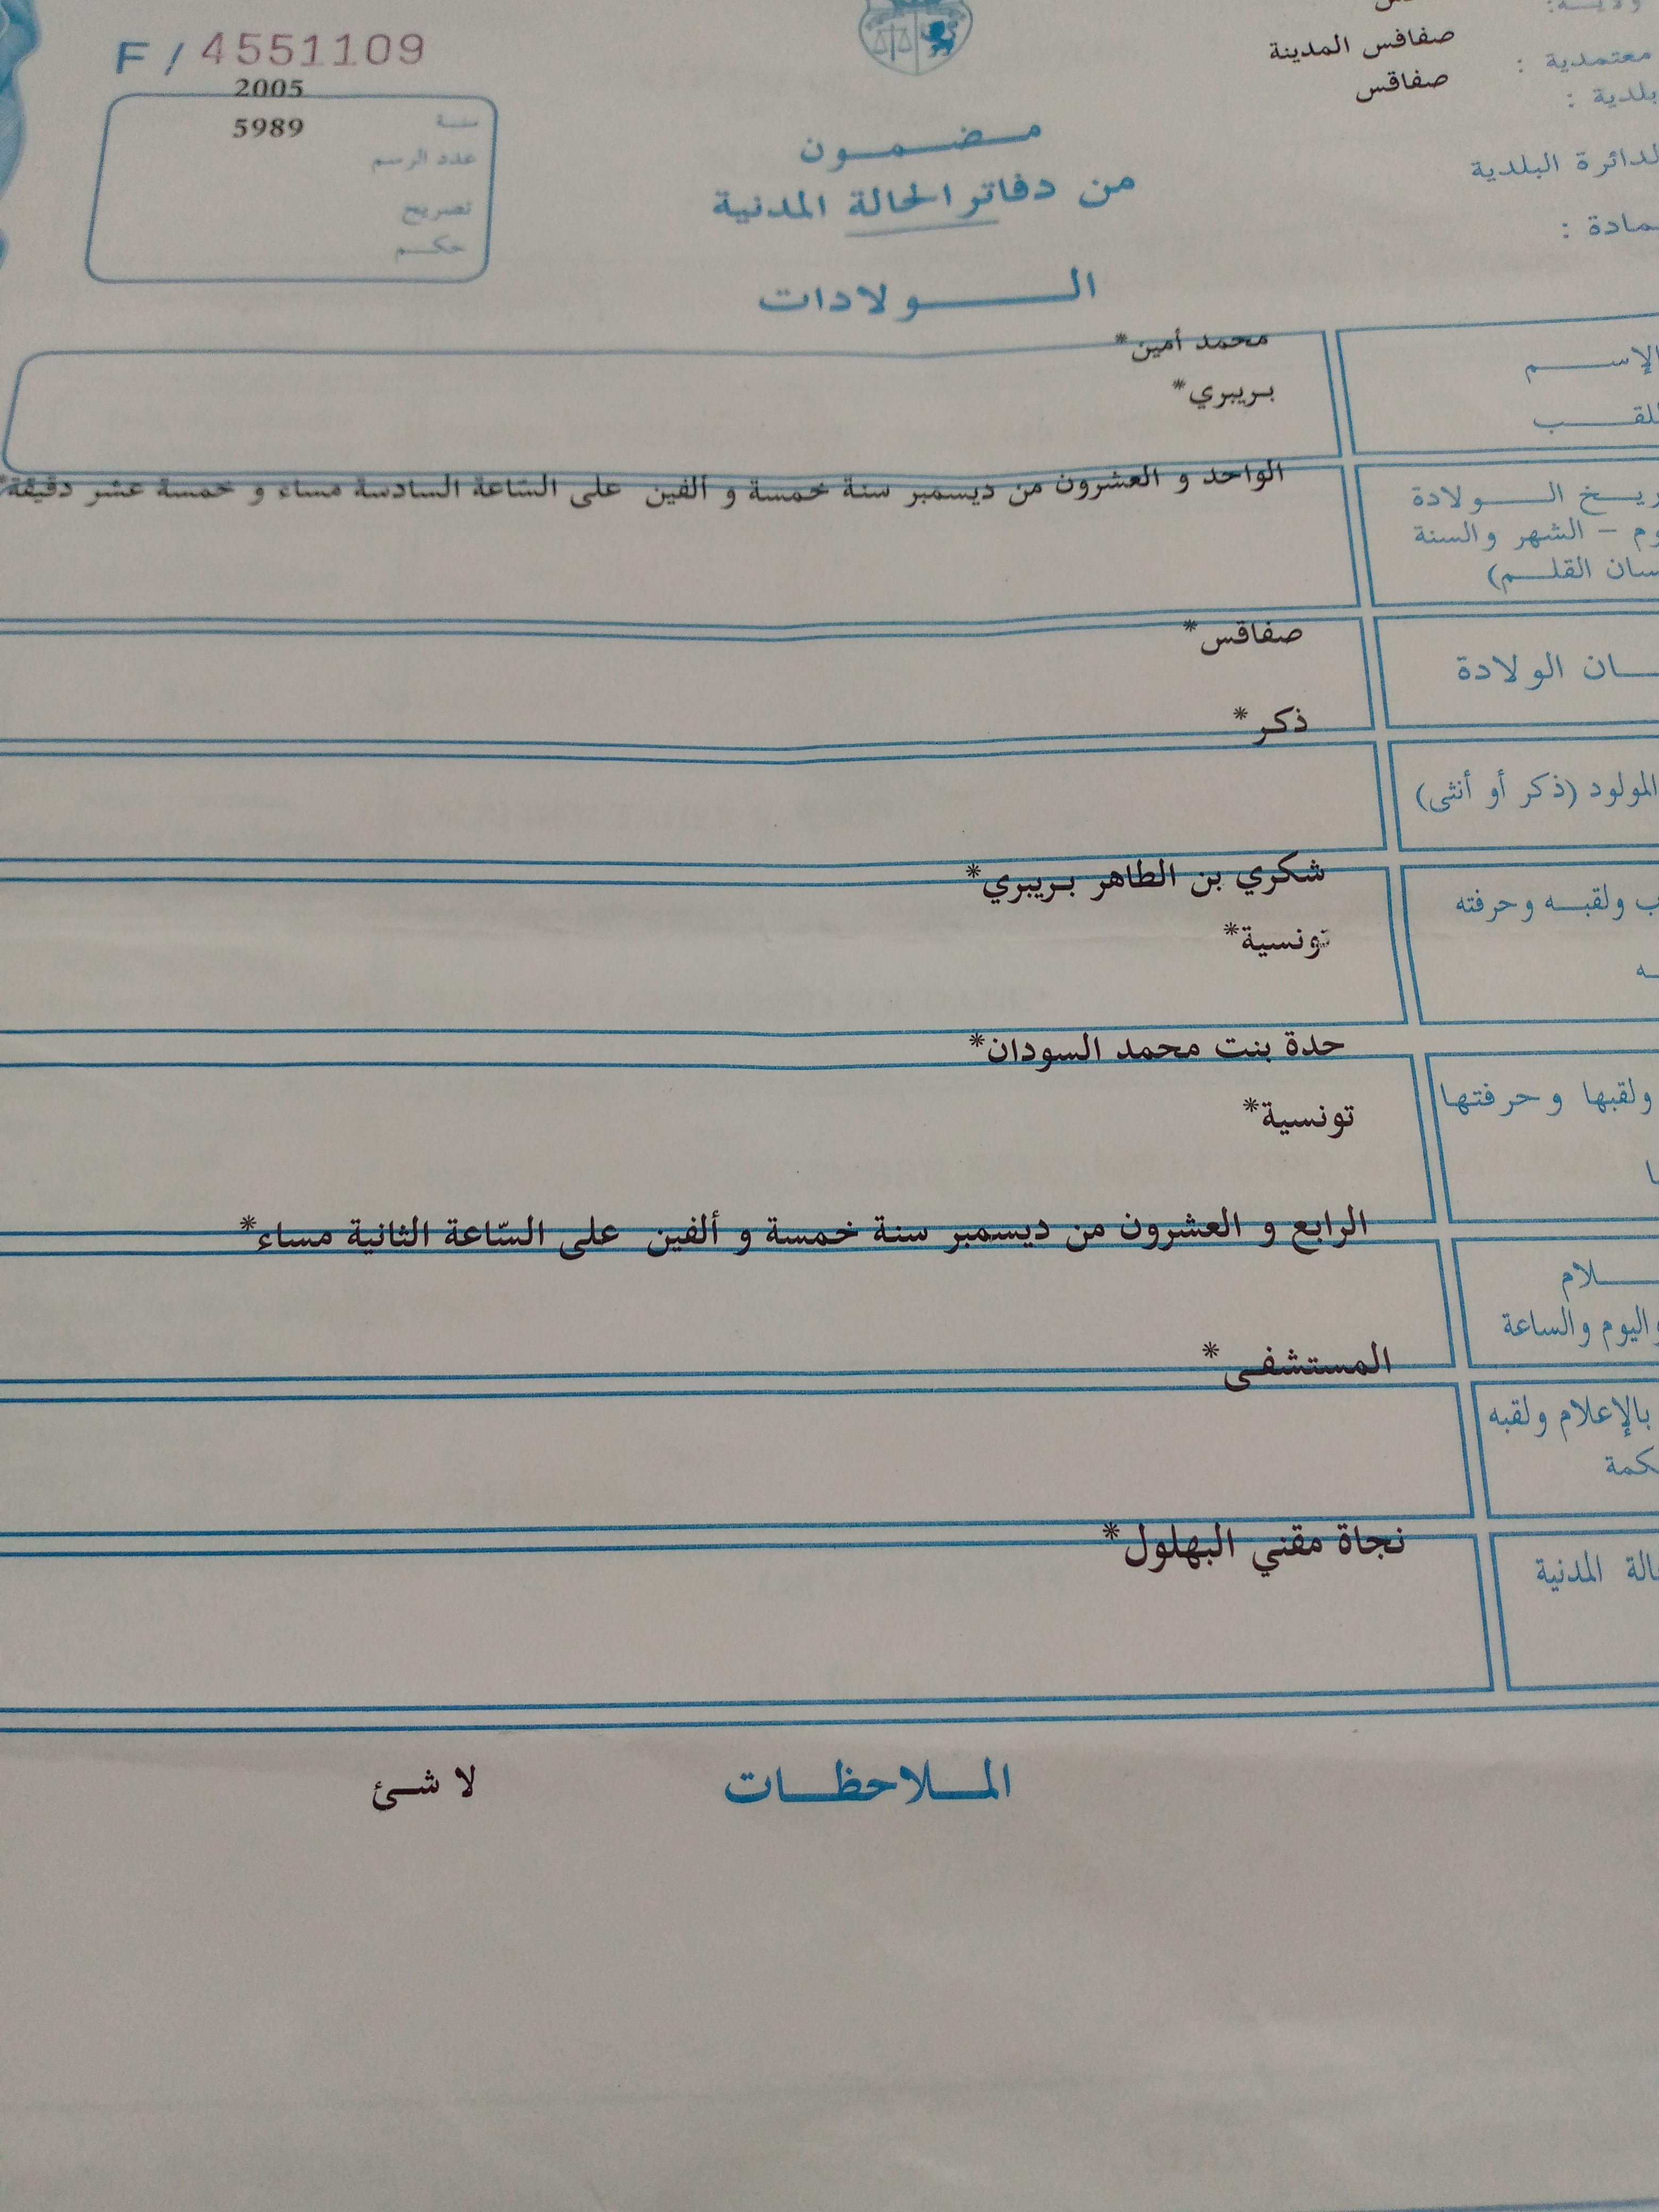 F / 4551109
2005
5989
سنة
عدد الرسم
تصريح
حكم
صفاقس المدينة
معتمدية :
صفاقس
بلدية :
الدائرة البلدية
مضمون
من دفاتر الحالة المدنية
الولادات
محمد أمين*
الإسم
بريبري*
اللقب
الواحد و العشرون من ديسمبر سنة خمسة و ألفين على السّاعة السادسة مساء و خمسة عشر دقيقة*
الولادة
الشهر والسنة
القلم)
صفاقس*
الولادة
ذكر*
المولود (ذكر أو أنثى)
شكري بن الطاهر بريبري*
ولقبه وحرفته
تونسية*
حدة بنت محمد السودان*
ولقبها وحرفتها
تونسية*
الرابع و العشرون من ديسمبر سنة خمسة و ألفين على السّاعة الثانية مساء*
واليوم والساعة
المستشفى*
بالإعلام ولقبه
نجاة مقني البهلول*
المدنية
الملاحظات لا شئ